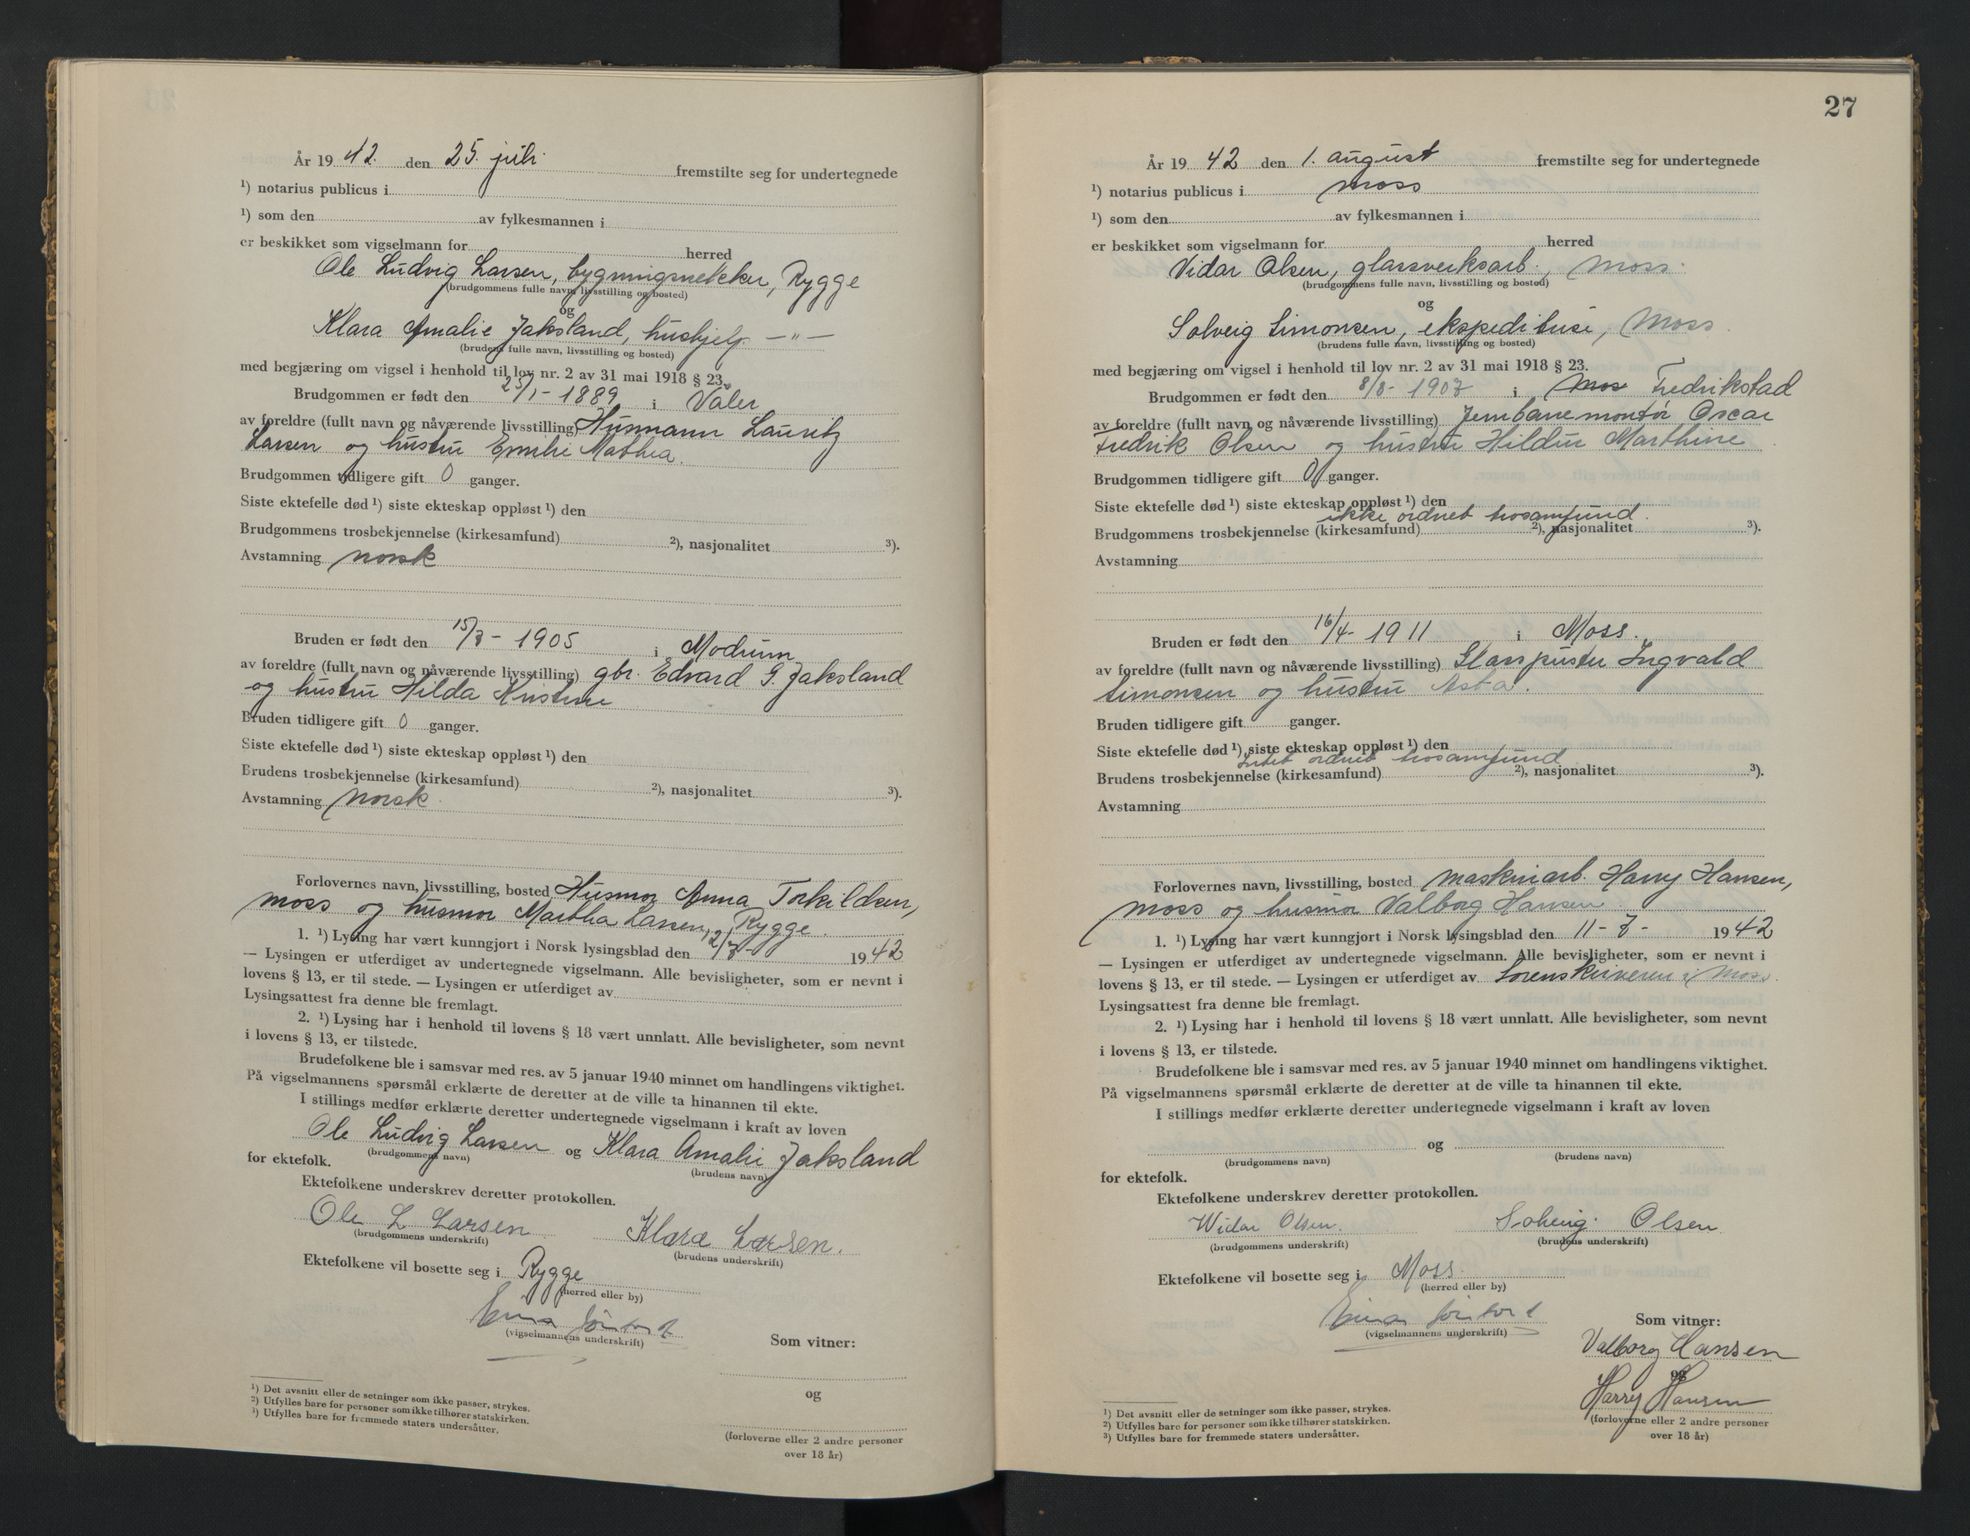 År 19 42. den 25. juli. fremstilte seg for undertegnede
¹) notarius publicus i
¹) som den av fylkesmannen i
er beskikket som vigselmann for herred
Ole Ludvig Larsen, bygningssnekker, Rygge
(brudgommens fulle navn, livsstilling og bosted)
og
Klara Amalie Jaksland, hushjelp — " —
(brudens fulle navn, livsstilling og bosted)
med begjæring om vigsel i henhold til lov nr. 2 av 31 mai 1918 § 23.
Brudgommen er født den 25/1 - 1889 i Våler
av foreldre (fullt navn og nåværende livsstilling) Husmann Lauritz
Larsen og hustru Emilie Mathea.
Brudgommen tidligere gift 0 ganger.
Siste ektefelle død ¹) siste ekteskap oppløst ¹) den
Brudgommens trosbekjennelse (kirkesamfund) ²), nasjonalitet ³).
Avstamning norsk
Bruden er født den 15/3 - 1905 i Modum
av foreldre (fullt navn og nåværende livsstilling) gbr. Edvard G. Jaksland
og hustru Hilda Kristine
Bruden tidligere gift 0 ganger.
Siste ektefelle død ¹) siste ekteskap oppløst ¹) den
Brudens trosbekjennelse (kirkesamfund) ²), nasjonalitet ³).
Avstamning norsk.
Forlovernes navn, livsstilling, bosted Husmor Anna Torkildsen,
Moss og husmor Martha Larsen, Rygge.
1. ¹) Lysing har vært kunngjort i Norsk lysingsblad den 2/7 - 19 42
— Lysingen er utferdiget av undertegnede vigselmann. Alle bevisligheter, som er nevnt i
lovens § 13, er til stede. — Lysingen er utferdiget av
Lysingsattest fra denne ble fremlagt.
2. ¹) Lysing har i henhold til lovens § 18 vært unnlatt. Alle bevisligheter, som nevnt
i lovens § 13, er tilstede.
Brudefolkene ble i samsvar med res. av 5 januar 1940 minnet om handlingens viktighet.
På vigselmannens spørsmål erklærte de deretter at de ville ta hinannen til ekte.
I stillings medfør erklærte deretter undertegnede vigselmann i kraft av loven
Ole Ludvig Larsen og Klara Amalie Jaksland
(brudgommens navn) (brudens navn)
for ektefolk.
Ektefolkene underskrev deretter protokollen.
Ole L Larsen Klara Larsen.
(brudgommens underskrift) (brudens underskrift)
Ektefolkene vil bosette seg i Rygge
(herred eller by)
(vigselmannens underskrift)
Som vitner:
og
(forloverne eller 2 andre personer
over 18 år)
¹) Det avsnitt eller de setninger som ikke passer, strykes.
²) Utfylles bare for personer som ikke tilhører statskirken.
³) Utfylles bare for fremmede staters undersåtter.
27
År 19 42 den 1. august fremstilte seg for undertegnede
¹) notarius publicus i Moss
¹) som den av fylkesmannen i
er beskikket som vigselmann for herred
Vidar Olsen, glassverksarb., Moss.
(brudgommens fulle navn, livsstilling og bosted)
og
Solveig Simonsen, ekspeditrise, Moss.
(brudens fulle navn, livsstilling og bosted)
med begjæring om vigsel i henhold til lov nr. 2 av 31 mai 1918 § 23.
Brudgommen er født den 8/8 - 1907 i Moss Fredrikstad
av foreldre (fullt navn og nåværende livsstilling) Jernbanemontör Oscar
Fredrik Olsen og hustru Hildur Marthine
Brudgommen tidligere gift 0 ganger.
Siste ektefelle død ¹) siste ekteskap oppløst ¹) den
ikke ordnet trosamfund.
Brudgommens trosbekjennelse (kirkesamfund) ²), nasjonalitet ³).
Avstamning
Bruden er født den 16/4 - 1911 i Moss.
av foreldre (fullt navn og nåværende livsstilling) Glasspuster Ingvald
Simonsen og hustru Asta.
Bruden tidligere gift ganger.
Siste ektefelle død ¹) siste ekteskap oppløst ¹) den
Intet ordnet trosamfund
Brudens trosbekjennelse (kirkesamfund) ²), nasjonalitet ³).
Avstamning
Forlovernes navn, livsstilling, bosted Maskinarb. Harry Hansen,
Moss og husmor Valborg Hansen.
1. ¹) Lysing har vært kunngjort i Norsk lysingsblad den 11 - 7 - 19 42
— Lysingen er utferdiget av undertegnede vigselmann. Alle bevisligheter, som er nevnt i
lovens § 13, er til stede. — Lysingen er utferdiget av Sorenskriveren i Moss.
Lysingsattest fra denne ble fremlagt.
2. ¹) Lysing har i henhold til lovens § 18 vært unnlatt. Alle bevisligheter, som nevnt
i lovens § 13, er tilstede.
Brudefolkene ble i samsvar med res. av 5 januar 1940 minnet om handlingens viktighet.
På vigselmannens spørsmål erklærte de deretter at de ville ta hinannen til ekte.
I stillings medfør erklærte deretter undertegnede vigselmann i kraft av loven
og
(brudgommens navn) (brudens navn)
for ektefolk.
Ektefolkene underskrev deretter protokollen.
Widar Olsen. Solveig Olsen
(brudgommens underskrift) (brudens underskrift)
Ektefolkene vil bosette seg i Moss.
(herred eller by)
(vigselmannens underskrift)
Som vitner:
Valborg Hansen
og
Harry Hansen
(forloverne eller 2 andre personer
over 18 år)
¹) Det avsnitt eller de setninger som ikke passer, strykes.
²) Utfylles bare for personer som ikke tilhører statskirken.
³) Utfylles bare for fremmede staters undersåtter.